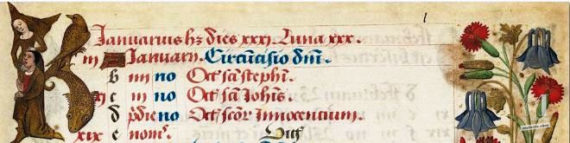 Januarius hz dies xxxj Luna xxx.
iij A Januarij. Circuncisio dnī.
b iiij no Oct̄ sc̄i stephī.
xj c iij no Oct̄ sc̄i Iohīs.
d pdie no Oct̄ scōr Innocentium.
xix e nonis.